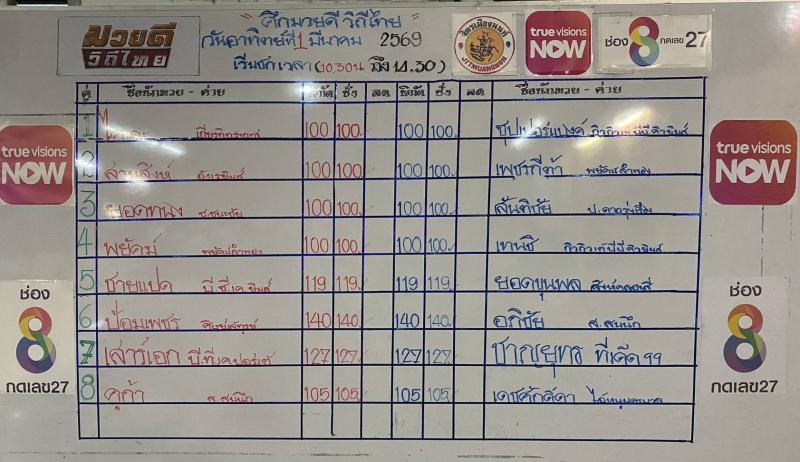 มวยดี วิถีไทย
"ศึกมวยดี วิถีไทย"
วันอาทิตย์ที่ 1 มีนาคม 2569
เริ่มชกเวลา (10.30น ถึง 14.30)
จิตรเมืองนนท์
JITMUANGNON
true visions NOW
ช่อง 8 กดเลข 27
คู่ ชื่อนักมวย - ค่าย พิกัด ชั่ง ลด พิกัด ชั่ง ลด ชื่อนักมวย - ค่าย
1 100 100 100 100 ซุปเปอร์แบงค์
2 สายสิงห์ 100 100 100 100 เพชรกีต้า พยัคฆ์ลำพอง
3 ยอดทนง 100 100 100 100 สันติชัย
4 พยัคฆ์ พยัคฆ์ลำพอง 100 100 100 100 เทนชิ
5 ชายแปด บี.ซี.เค.ยิมส์ 119 119 119 119 ยอดขุนพล
6 ป้อมเพชร 140 140 140 140 อภิชัย ส.สมนึก
7 เสาร์เอก 127 127 127 127 ชาญยุทธ ทีเด็ด99
8 คูก้า ส.สมนึก 105 105 105 105 เดชศักดิ์ดา
true visions NOW
true visions NOW
ช่อง 8 กดเลข27
ช่อง 8 กดเลข27